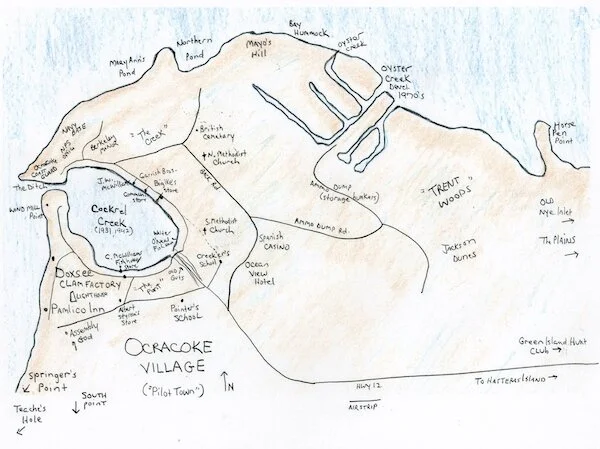 BAY
HUMMOCK
Northern
Pond
Mary Ann's
Pond
Mayo's
Hill
OYSTER
Creek
OYSTER
CREEK
Devel
1970's
Horse
Pen
Point
NAVY BASE
NPS
Berkeley Manor
"The Creek"
OCRACOKE
COAST
GUARD
The Ditch
• British
Cemetary
N. Methodist
Church
BACK RD
Garish Bros.
Big Ike's
Store
Community
Store
J.W.
McWilliams
WIND MILL
Point
Cockrel
Creek
(1931, 1942)
Walter
O'Neal
Fish
S. Methodist
Church
Ammo Dump
(storage bunkers)
Ammo Dump Rd.
"TRENT
WOODS"
OLD
Nye Inlet
The PLAINS
Jackson
Dunes
SPANISH
CASINO
Ocean
View
Hotel
Creeker's
School
C. McWilliams
Fish
Store
OLD
Guts
"The Point"
Doxsee
CLAM FACTORY
LIGHTHOUSE
Pamlico Inn
Albert
Styron's
Store
Pointer's
School
"Assembly
of
God
OCRACOKE
VILLAGE
("Pilot Town")
N
Springer's
Point
SOUTH
POINT
Teache's
Hole
Green Island Hunt
Club
To HATTERAS ISLAND
HWY 12
AIRSTRIP